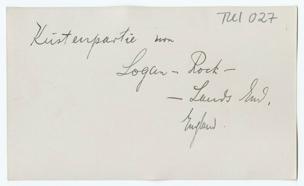 TM 027
Küstenpartie von
Logan - Rock -
- Lands End,
England.